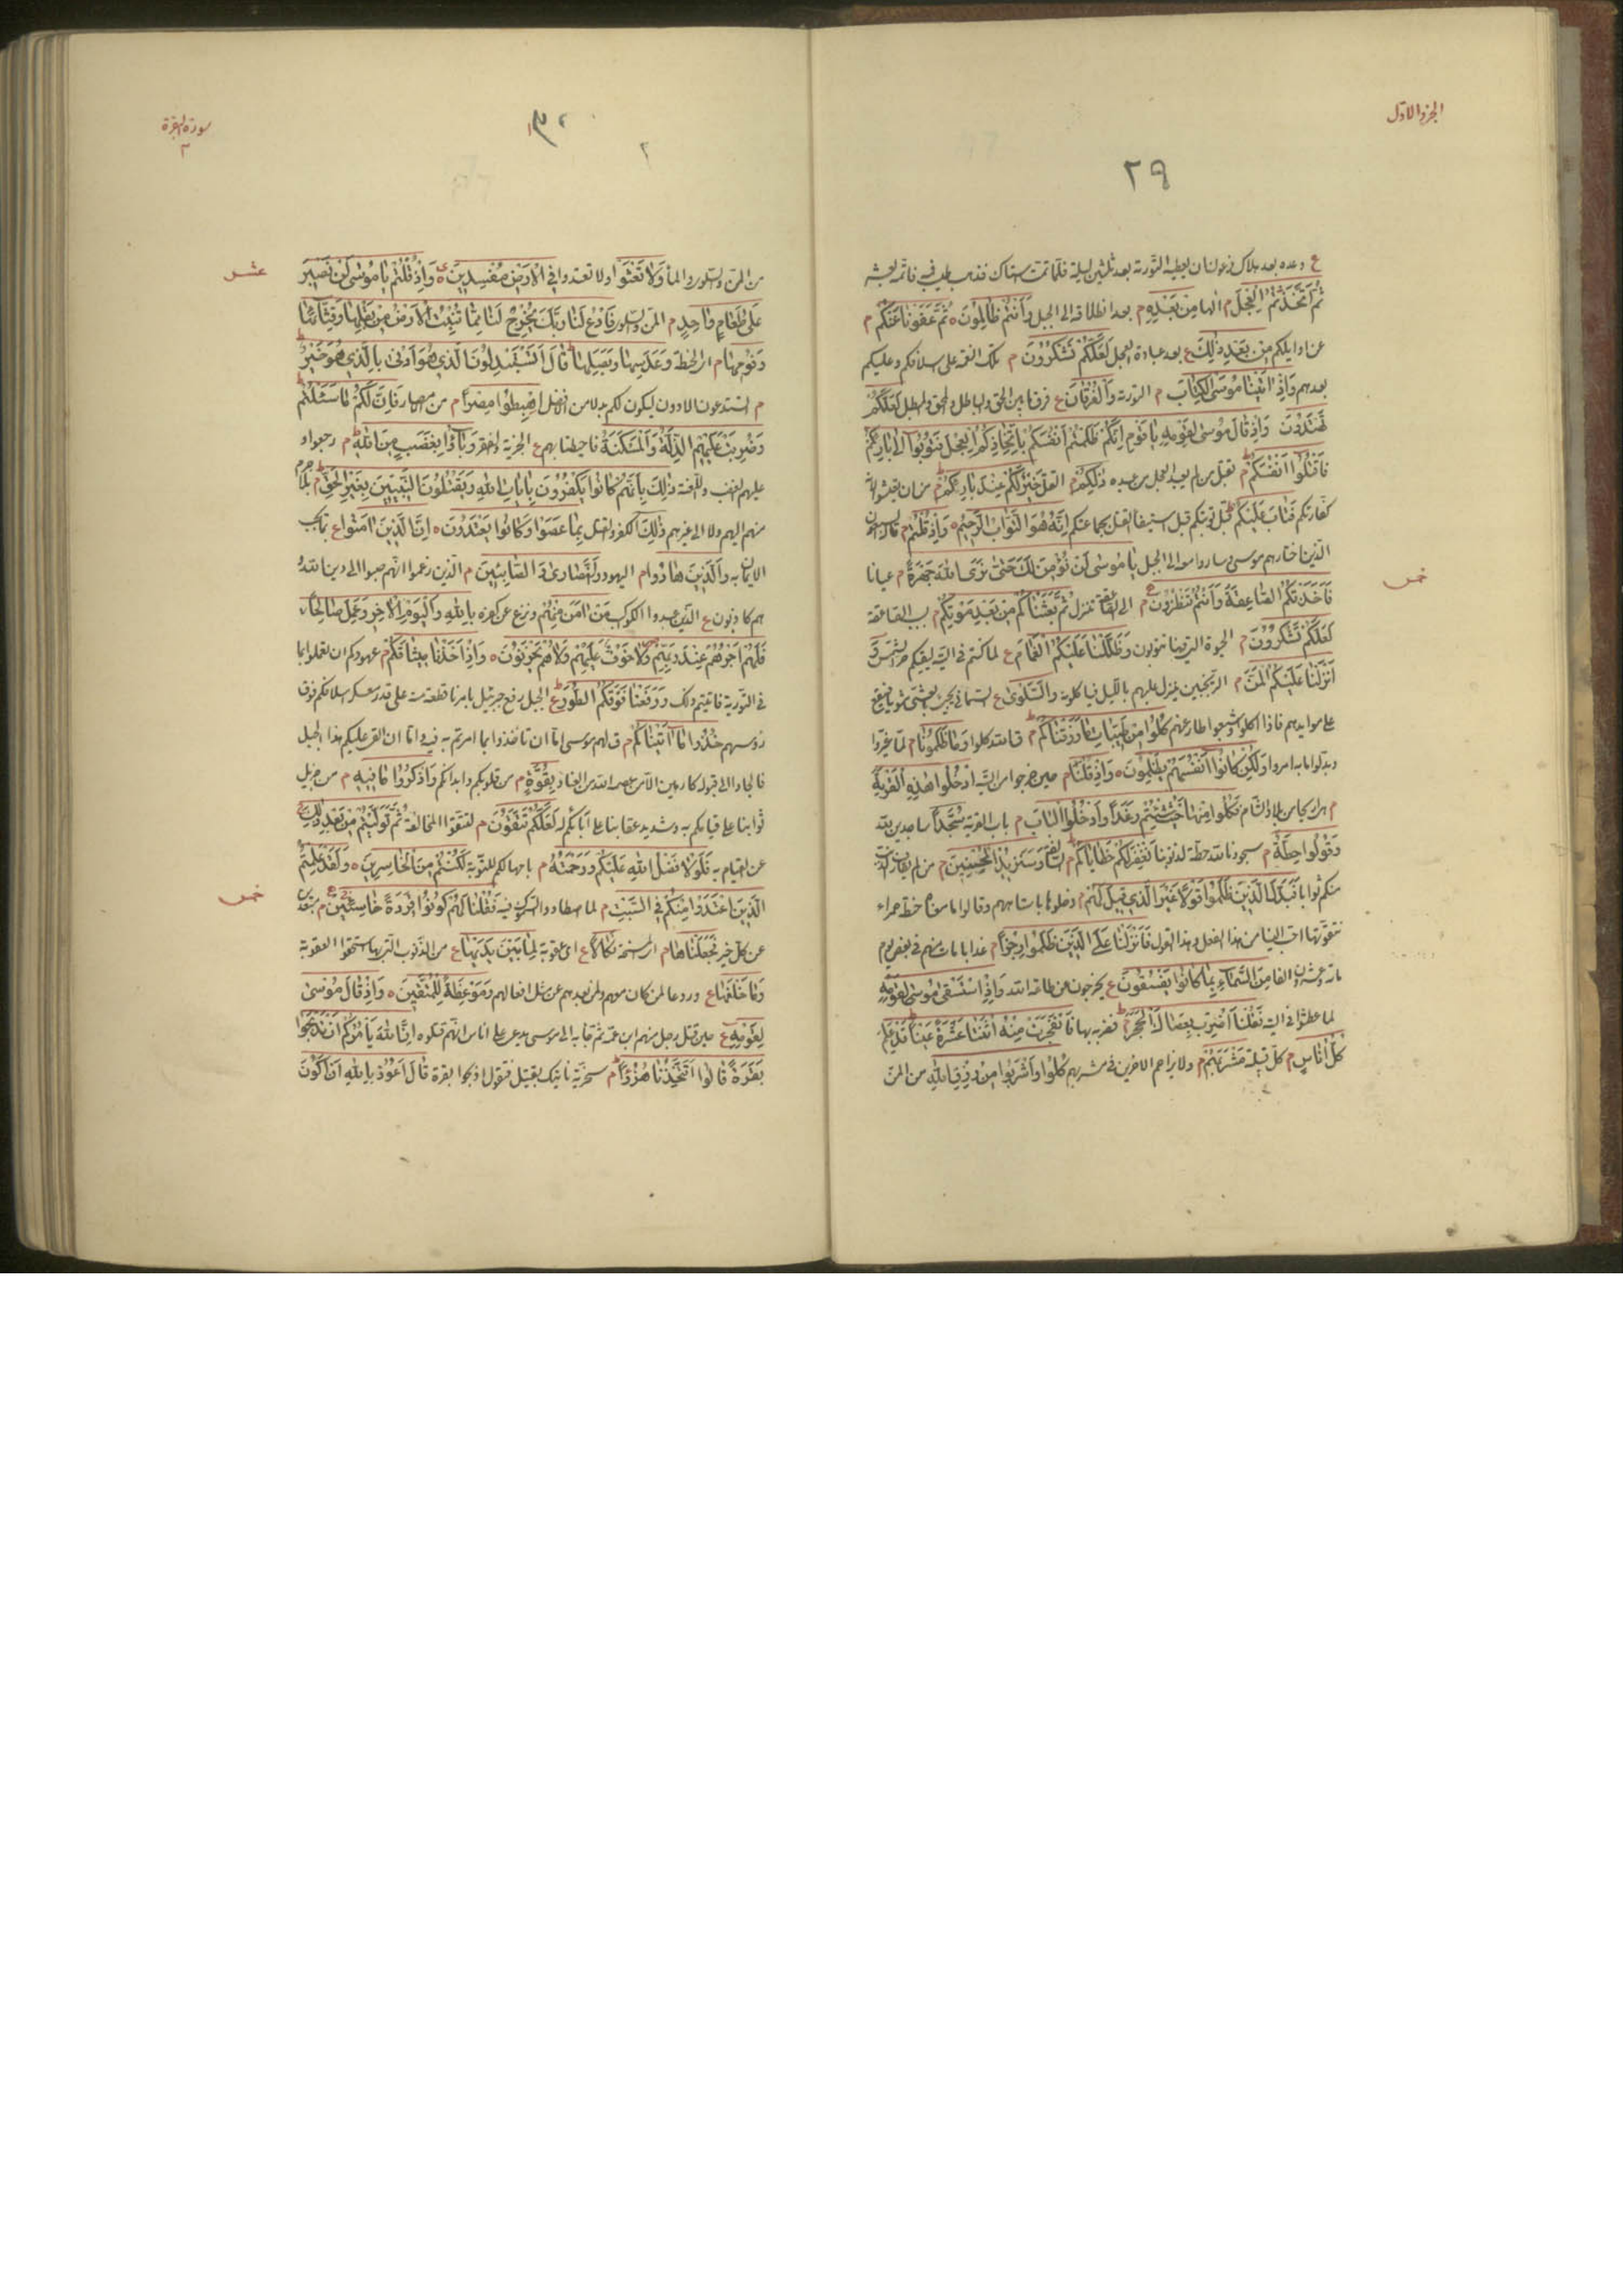 الجزء الاول
٢٩
ع وعده بعد هلاك فرعون ان يعطيه التورية بعد ثلثين ليلة فلما تمت استاك فذهب طيب فيه فاتمه بعشر
ثُمَّ اتَّخَذْتُمُ الْعِجْلَ م الها مِنْ بَعْدِهِ م بعد انطلاقه الى الجبل وَاَنْتُمْ ظَالِمُونَ ه ثُمَّ عَفَوْنَا عَنْكُمْ م
عن اوايلكم مِنْ بَعْدِ ذٰلِكَ ع بعد عبادة العجل لَعَلَّكُمْ تَشْكُرُونَ م تلك النعمة على اسلافكم وعليكم
بعدهم وَاِذْ اٰتَيْنَا مُوسَى الْكِتَابَ م التورية وَالْفُرْقَانَ ع فرقا بين الحق والباطل والمحق والمبطل لَعَلَّكُمْ
تَهْتَدُونَ وَاِذْ قَالَ مُوسٰى لِقَوْمِهِ يَا قَوْمِ اِنَّكُمْ ظَلَمْتُمْ اَنْفُسَكُمْ بِاتِّخَاذِكُمُ الْعِجْلَ فَتُوبُوا اِلٰى بَارِئِكُمْ
فَاقْتُلُوا اَنْفُسَكُمْ م بقتل من لم يعبد العجل من عبده ذٰلِكُمْ م القتل خَيْرٌ لَكُمْ عِنْدَ بَارِئِكُمْ م من ان تعيشوا
كفارتكم فَتَابَ عَلَيْكُمْ قبل توبتكم قبل استيفاء القتل بجماعتكم اِنَّهُ هُوَ التَّوَّابُ الرَّحِيمُ ه وَاِذْ قُلْتُمْ م
الذين اختارهم موسى وصاروا معه الى الجبل يَا مُوسٰى لَنْ نُؤْمِنَ لَكَ حَتّٰى نَرَى اللّٰهَ جَهْرَةً م عيانا
خمس
فَاَخَذَتْكُمُ الصَّاعِقَةُ وَاَنْتُمْ تَنْظُرُونَ م الى الصاعقة تنزل ثُمَّ بَعَثْنَاكُمْ مِنْ بَعْدِ مَوْتِكُمْ م بسبب الصاعقة
لَعَلَّكُمْ تَشْكُرُونَ م الحيوة التي فيها تتوبون وَظَلَّلْنَا عَلَيْكُمُ الْغَمَامَ ع لما كنتم في التيه ليقيكم حر الشمس وَ
اَنْزَلْنَا عَلَيْكُمُ الْمَنَّ م الترنجبين ينزل عليهم بالليل فياكلونه وَالسَّلْوٰى ع السمانى يجيئ بالعشي مشويا فيقع
على موايدهم فاذا اكلوا وشبعوا طار عنهم كُلُوا مِنْ طَيِّبَاتِ مَا رَزَقْنَاكُمْ م قال الله كلوا وَمَا ظَلَمُونَا م لما غيروا
وبدلوا ما به امروا وَلٰكِنْ كَانُوا اَنْفُسَهُمْ يَظْلِمُونَ ه وَاِذْ قُلْنَا م حين خرجوا من التيه ادْخُلُوا هٰذِهِ الْقَرْيَةَ
م هي اريحا من بلاد الشام فَكُلُوا مِنْهَا حَيْثُ شِئْتُمْ رَغَدًا وَادْخُلُوا الْبَابَ م باب القرية سُجَّدًا ساجدين لله
وَقُولُوا حِطَّةٌ م سجودنا لله حطة لذنوبنا نَغْفِرْ لَكُمْ خَطَايَاكُمْ م السالفة وَسَنَزِيدُ الْمُحْسِنِينَ م من لم يقارف الذنب
منكم ثوابا فَبَدَّلَ الَّذِينَ ظَلَمُوا قَوْلًا غَيْرَ الَّذِي قِيلَ لَهُمْ م دخلوها باستاههم وقالوا ما معناه حنطة حمراء
نتقوتها احب الينا من هذا الفعل وهذا القول فَاَنْزَلْنَا عَلَى الَّذِينَ ظَلَمُوا رِجْزًا م عذابا مات منهم في بعض يوم
مائة وعشرون الفا مِنَ السَّمَاءِ بِمَا كَانُوا يَفْسُقُونَ ع يخرجون عن طاعة الله وَاِذِ اسْتَسْقٰى مُوسٰى لِقَوْمِهِ
لما عطشوا في التيه فَقُلْنَا اضْرِبْ بِعَصَاكَ الْحَجَرَ فضربه بها فَانْفَجَرَتْ مِنْهُ اثْنَتَا عَشْرَةَ عَيْنًا قَدْ عَلِمَ
كُلُّ اُنَاسٍ م كل قبيلة مَشْرَبَهُمْ م ولا يزاحم الآخرين في مشربهم كُلُوا وَاشْرَبُوا مِنْ رِزْقِ اللّٰهِ من المن
سورة البقرة
٢
٢
عشر
من المن والسلوى والماء وَلَا تَعْثَوْا ولا تعتدوا فِي الْاَرْضِ مُفْسِدِينَ ه وَاِذْ قُلْتُمْ يَا مُوسٰى لَنْ نَصْبِرَ
عَلٰى طَعَامٍ وَاحِدٍ م المن والسلوى فَادْعُ لَنَا رَبَّكَ يُخْرِجْ لَنَا مِمَّا تُنْبِتُ الْاَرْضُ مِنْ بَقْلِهَا وَقِثَّائِهَا
وَفُومِهَا م اي الحنطة وَعَدَسِهَا وَبَصَلِهَا قَالَ اَتَسْتَبْدِلُونَ الَّذِي هُوَ اَدْنٰى بِالَّذِي هُوَ خَيْرٌ
م اتستدعون الادون ليكون لكم بدلا من الافضل اهْبِطُوا مِصْرًا م من الامصار فَاِنَّ لَكُمْ مَا سَئَلْتُمْ
وَضُرِبَتْ عَلَيْهِمُ الذِّلَّةُ وَالْمَسْكَنَةُ فاحيطتا بهم ع الجزية والفقر وَبَاؤُا بِغَضَبٍ مِنَ اللّٰهِ م رجعوا و
عليهم الغضب واللعنة ذٰلِكَ بِاَنَّهُمْ كَانُوا يَكْفُرُونَ بِاٰيَاتِ اللّٰهِ وَيَقْتُلُونَ النَّبِيِّينَ بِغَيْرِ الْحَقِّ م
منهم اليهم ولا الى غيرهم ذٰلِكَ الكفر والقتل بِمَا عَصَوْا وَكَانُوا يَعْتَدُونَ ه اِنَّ الَّذِينَ اٰمَنُوا ع
الايمان به وَالَّذِينَ هَادُوا م اليهود وَالنَّصَارٰى وَالصَّابِئِينَ م الذين زعموا انهم صبوا الى دين الله و
هم كاذبون ع الذين عبدوا الكوكب مَنْ اٰمَنَ مِنْهُمْ ونزع عن كفره بِاللّٰهِ وَالْيَوْمِ الْاٰخِرِ وَعَمِلَ صَالِحًا
فَلَهُمْ اَجْرُهُمْ عِنْدَ رَبِّهِمْ وَلَا خَوْفٌ عَلَيْهِمْ وَلَا هُمْ يَحْزَنُونَ ه وَاِذْ اَخَذْنَا مِيثَاقَكُمْ م عهودكم ان تعملوا بما
في التورية فابيتم ذلك وَرَفَعْنَا فَوْقَكُمُ الطُّورَ ع الجبل رفع جبرئيل بامرنا قطعة منه على قدر معسكر اسلافكم فوق
رؤسهم خُذُوا مَا اٰتَيْنَاكُمْ م قال لهم موسى اما ان تاخذوا بما امرتم به فيه واما ان القي عليكم هذا الجبل
فالجاوا الى قبوله كارهين الا من عصمه الله من العناد بِقُوَّةٍ م من قلوبكم وابدانكم وَاذْكُرُوا مَا فِيهِ م من جزيل
ثوابنا على قيامكم به وشديد عقابنا على ابائكم له لَعَلَّكُمْ تَتَّقُونَ م لتتقوا المخالفة ثُمَّ تَوَلَّيْتُمْ مِنْ بَعْدِ ذٰلِكَ
عن القيام به فَلَوْلَا فَضْلُ اللّٰهِ عَلَيْكُمْ وَرَحْمَتُهُ م بامهالكم للتوبة لَكُنْتُمْ مِنَ الْخَاسِرِينَ ه وَلَقَدْ عَلِمْتُمُ
خمس
الَّذِينَ اعْتَدَوْا مِنْكُمْ فِي السَّبْتِ م لما اصطادوا السموك فيه فَقُلْنَا لَهُمْ كُونُوا قِرَدَةً خَاسِئِينَ م
عن كل خير فَجَعَلْنَاهَا م اي المسخة نَكَالًا ع اي عقوبة لِمَا بَيْنَ يَدَيْهَا ع من الذنوب التي بها استحقوا العقوبة
وَمَا خَلْفَهَا ع وردعا لمن كان معهم ولمن بعدهم عن مثل افعالهم وَمَوْعِظَةً لِلْمُتَّقِينَ ه وَاِذْ قَالَ مُوسٰى
لِقَوْمِهِ ع حين قتل رجل منهم ابن عمه ثم جاء به الى موسى يدعي على اناس انهم قتلوه اِنَّ اللّٰهَ يَاْمُرُكُمْ اَنْ تَذْبَحُوا
بَقَرَةً قَالُوا اَتَتَّخِذُنَا هُزُوًا م سخرية ناتيك بقتيل فتقول اذبحوا بقرة قَالَ اَعُوذُ بِاللّٰهِ اَنْ اَكُونَ